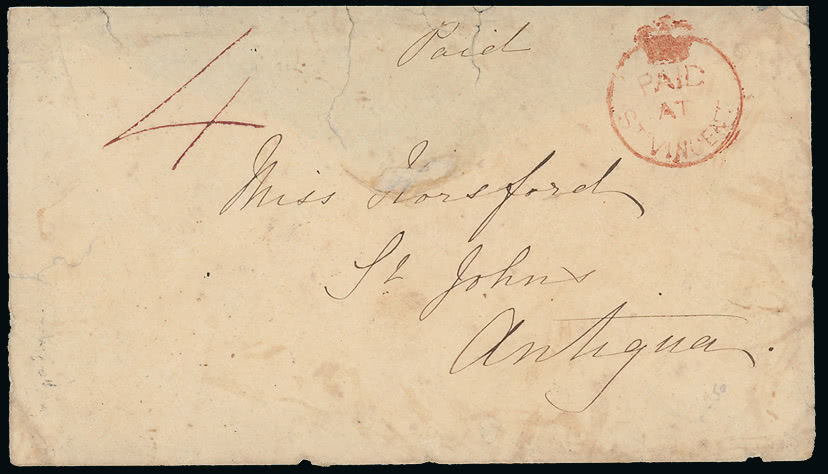 Paid
4
PAID
AT
ST VINCENT
Miss Horsford
St Johns
Antigua.